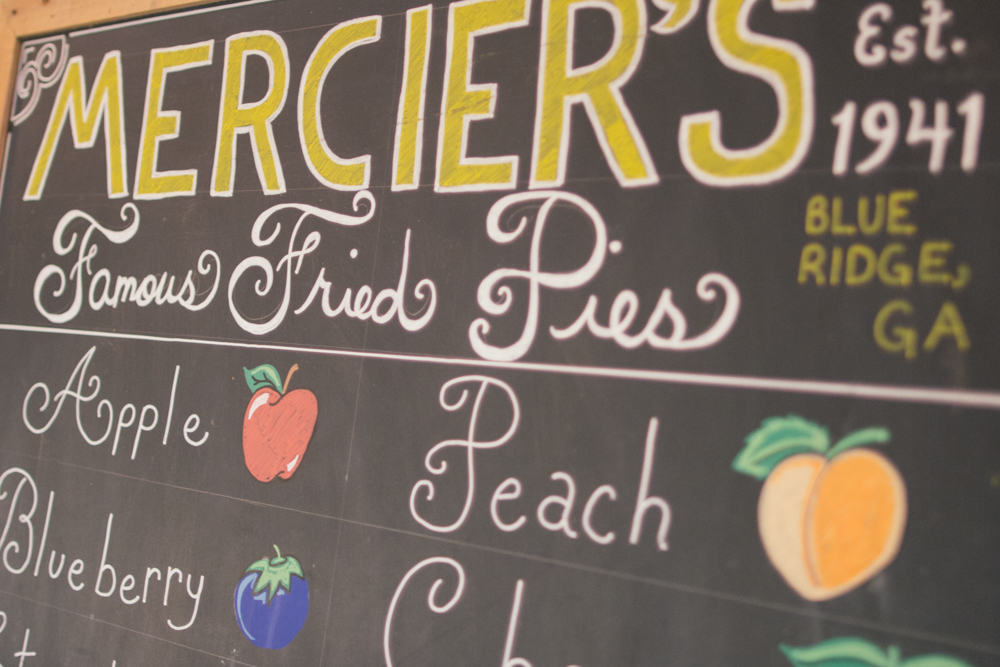 MERCIER'S
Est.
1941
Famous Fried Pies
BLUE
RIDGE,
GA
Apple
Peach
Blueberry